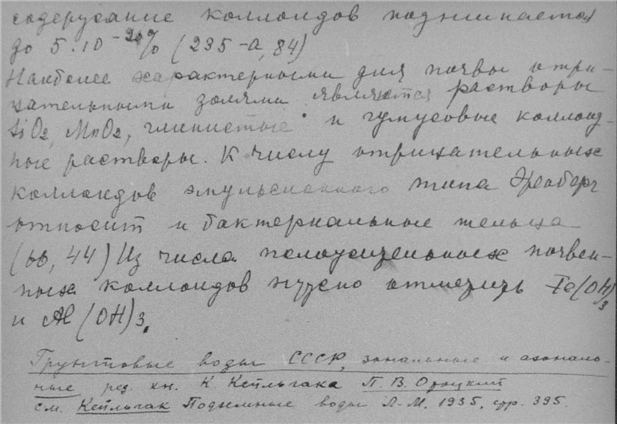 содержание коллоидов поднимается
до 5.10⁻²% (235-а, 84)
Наиболее характерными для почвы отри-
цательными золями являются растворы
SiO₂, MnO₂, глинистые и гумусовые коллоид-
ные растворы. К числу отрицательных
коллоидов эмульсионного типа Эренберг
относит и бактериальные тельца
(66, 44) Из числа положительных почвен-
ных коллоидов нужно отметить Fe(OH)₃
и Al(OH)₃.
Грунтовые воды СССР, зональные и азональ-
ные, ред. кн. К Кейльгака П. В. Отоцкий
см. Кейльгак Подземные воды Л-М. 1935, стр. 395.